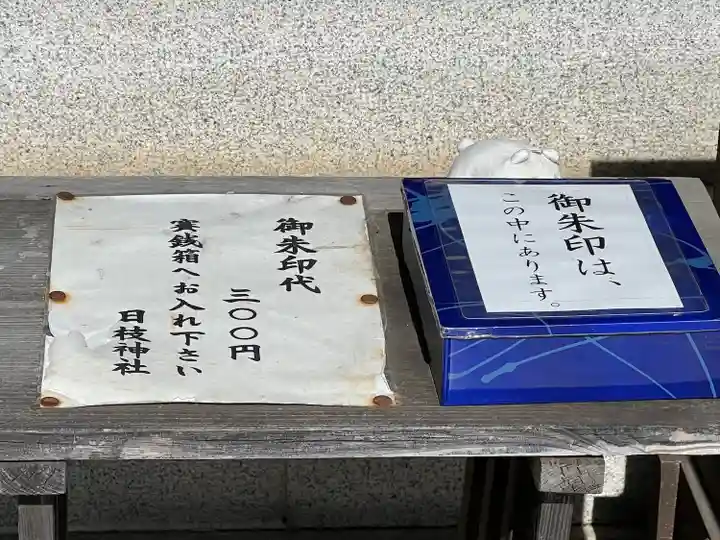 御朱印代
三〇〇円
賽銭箱へお入れ下さい
日枝神社
御朱印は、
この中にあります。